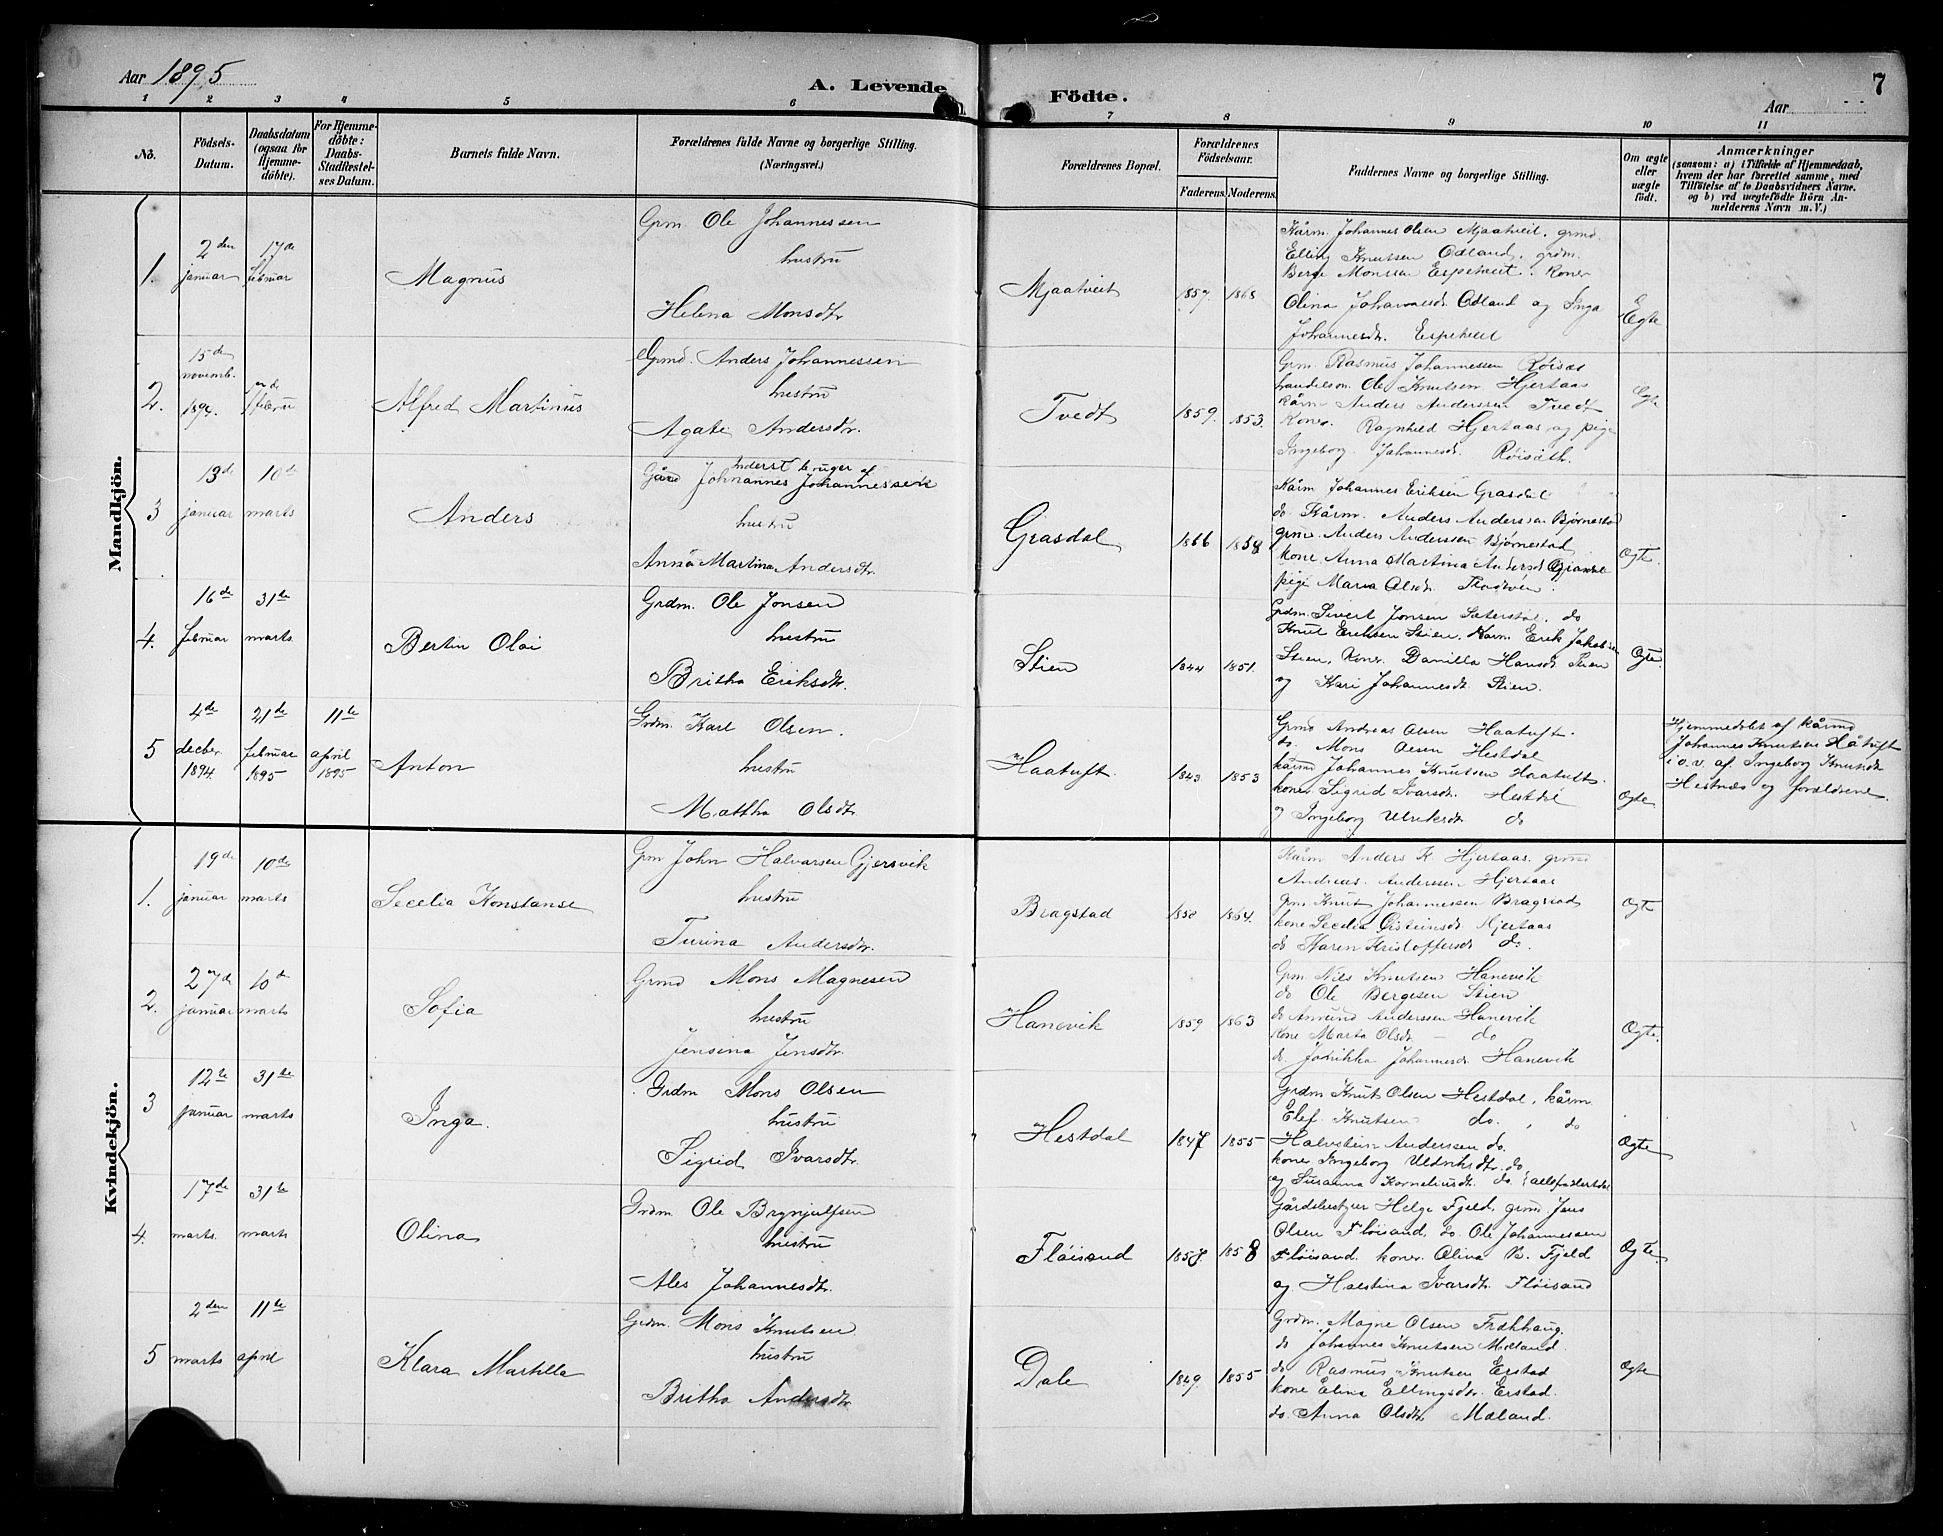 Aar 1895
A. Levende
Födte.
7
Aar
1 2 3 4 5 6 7 8 9 10 11
No.
Födsels-
Datum.
Daabsdatum
(ogsaa for
Hjemme-
döbte).
For Hjemme-
döbte:
Daabs-
Stadfæstel-
ses Datum.
Barnets fulde Navn.
Forældrenes fulde Navne og borgerlige Stilling.
(Næringsvei.)
Forældrenes Bopæl.
Forældrenes
Födselsaar.
Faderens. Moderens.
Faddernes Navne og borgerlige Stilling.
Om ægte
eller
uægte
födt.
Anmærkninger
(saasom: a) i Tilfælde af Hjemmedaab,
hvem der har forrettet samme, med
Tilföielse af to Daabsvidners Navne.
og b) ved uægtefödte Börn An-
melderens Navn m. V.)
Mandkjön.
1.
2den
januar
17de
februar
Magnus
Grm. Ole Johannessen
hustru
Helena Monsdtr
Mjaatveit
1857. 1868
Kårm. Johannes Olsen Mjaatveit. grmd.
Elling Knutsen Odland, grdm.
Berge Monssen Espetveit. Koner
Olina Johannesdr Odland og Inga
Johannesdt Espetveit
Egte
2.
15de
novemb.
1894.
17de
februar
Alfred Martinus
Grmd. Anders Johannessen
hustru
Agate Andersdr.
Tvedt
1859. 1853.
Grm. Rasmus Johannessen Röisæt
handelsm. Ole Knutsen Hjertaas
kårm Anders Anderssen Tvedt
Koner. Ragnhild Hjertaas og pige
Ingeborg Johannesdr. Röisæth.
Egte
3
13de
januar
10de
marts
Anders
inderst bruger af
Gård Johannes Johannessen
hustru
Anna Martina Andersdtr.
Grasdal
1866 1858
Kårm Johannes Eriksen Grasdal
do Kårm. Anders Anderssen Bjørnestad
grm. Anders Anderssen Bjørnestad
kone Anna Martina Andersd
pige Maria Olsdr
Ægte.
4.
16de
februar
31te
marts
Bertin Olai
Grdm. Ole Jonsen
hustru
Britha Eriksdtr.
Stien
1844 1851.
Grdm. Sivert Jonsen Sæterstøl. do
Knut Eriksen Stien. Kårm. Erik Jakobsen
Stien. Koner Danilla Hansdt Stien
og Kari Johannesdt Stien.
Ægte.
5
4de
decber.
1894
21de
februar
1895
11te
april
1895
Anton
Grdm. Karl Olsen.
hustru
Mattha Olsdtr
Haatuft.
1843. 1853
Grmd Andreas Olsen Haatuft.
do. Mons Olsen Hestdal
kårmd Johannes Knutsen Haatuft.
koner Sigrid Ivarsdr. Hestdal
og Ingeborg Ulriksdt do
Ægte
Hjemmedøbt af kårmd
Johannes Knutsen Håtuft
i o.v. af. Ingeborg Knutsdt
Hestnæs og forældrene.
Kvindekjön.
1.
19de
januar
10de
marts
Secelia Konstanse
Grm John Halvarsen Gjersvik
hustru
Turina Andersdtr.
Bragstad
1858 1864.
Kårm Anders K Hjertaas. grmd
Andreas. Anderssen Hjertaas
Grm Knut Johannessen Bragstad
kone Secelia Østeinsdt Hjertaas
do Karen Kristoffersdt do.
Ægte
2.
27de
januar
10de
marts
Sofia
Grmd Mons Magnesen
hustru
Jensina Jensdtr.
Hanevik
1859 1863
Grm. Nils Knutsen Hanevik
do Ole Bergesen Stien
do Amund Anderssen Hanevik
kone Marta Olsdt — do
do. Johannesdt Hanevik
Ægte.
3
12te
januar
31te
marts
Inga.
Grdm Mons Olsen
hustru
Sigrid Ivarsdtr
Hestdal
1847 1855
Grdm Knut Olsen Hestdal, kårm
Elef Knutsen do. , do
Halvstein Anderssen do.
kone Ingeborg Uldriksdtr do
og Susanna Korneliusdt do
Ægte
4.
17de
marts.
31te
marts
Olina
Grdm. Ole Brynjulfsen
hustru
Ales Johannesdtr.
Flöisand
1857. 1858
Gårdebestyer Helge Fjeld, grmd Jens
Olsen Flöisand, do. Ole Johannessen
Flöisand koner Olina B. Fjeld
og Halstina Ivarsdtr. Flöisand
Ægte.
5
2den
marts
11te
april
Klara Martilla
Grdm. Mons Knutsen
hustru
Britha Andersdtr.
Dale
1849. 1855
Grdm. Magne Olsen Frækhaug.
do Johannes Knutsen Mæland.
do Rasmus Knutsen Erstad
kone Elina Ellingsdr. Erstad.
do. Anna Olsdtr Mæland.
Ægte